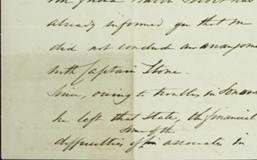 already informed you that we
did not conclude an arrangeme
with Captain Stone.
Since, owing to troubles in Sonora
he left that state, the financial
Some of the
difficulties of associates in